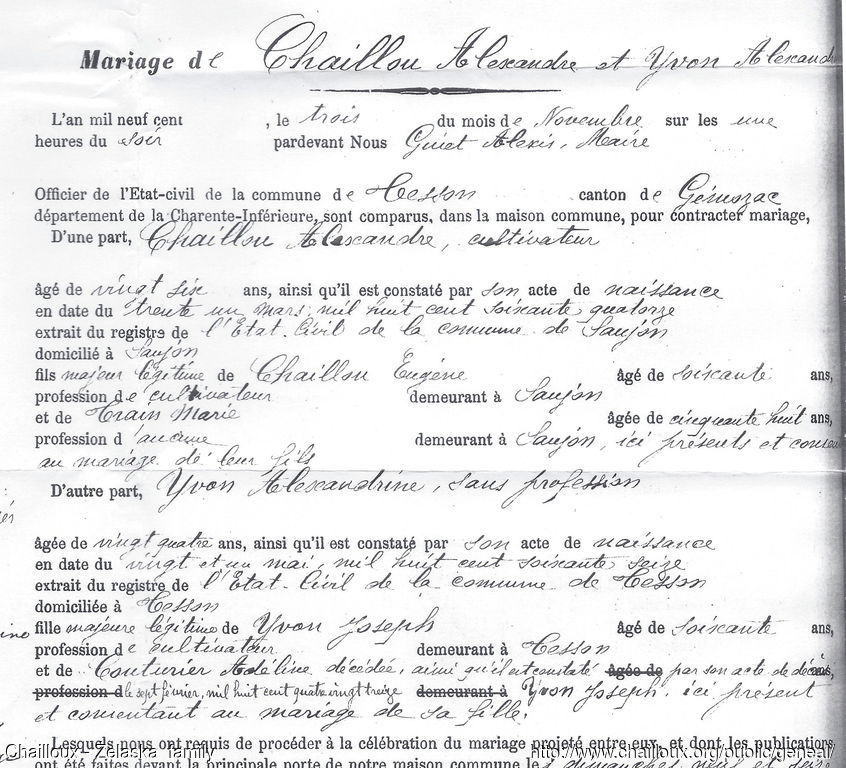 Mariage de Chaillou Alexandre et Yvon Alexand
L'an mil neuf cent , le trois du mois de Novembre sur les une
heures du soir pardevant Nous Guiet Alexis, Maire
Officier de l'Etat-civil de la commune de Tesson canton de Gémozac
département de la Charente-Inférieure, sont comparus, dans la maison commune, pour contracter mariage,
D'une part, Chaillou Alexandre, cultivateur
âgé de vingt six ans, ainsi qu'il est constaté par son acte de naissance
en date du trente un mars, mil huit cent soixante quatorze
extrait du registre de l'Etat-Civil de la commune de Saujon
domicilié à Saujon
fils majeur légitime de Chaillou Eugène âgé de soixante ans,
profession de cultivateur demeurant à Saujon
et de Train Marie âgée de cinquante huit ans,
profession d'aucune demeurant à Saujon, ici présents et consen
au mariage de leur fils
D'autre part, Yvon Alexandrine, sans profession
âgée de vingt quatre ans, ainsi qu'il est constaté par son acte de naissance
en date du vingt et un mai, mil huit cent soixante seize
extrait du registre de l'Etat-Civil de la commune de Tesson
domiciliée à Tesson
fille majeure légitime de Yvon Joseph âgé de soixante ans,
profession de cultivateur demeurant à Tesson
et de Couturier Adéline décédée, ainsi qu'il est constaté âgée de par son acte de décès, ans,
profession d le sept février, mil huit cent quatre vingt treize demeurant à Yvon Joseph, ici présent
et consentant au mariage de sa fille.
Lesquels nous ont requis de procéder à la célébration du mariage projeté entre eux, et dont les publications
ont été faites devant la principale porte de notre maison commune les dimanches neuf et seize
Chailloux - Zelaska family
http://www.chailloux.org/public/geneal/